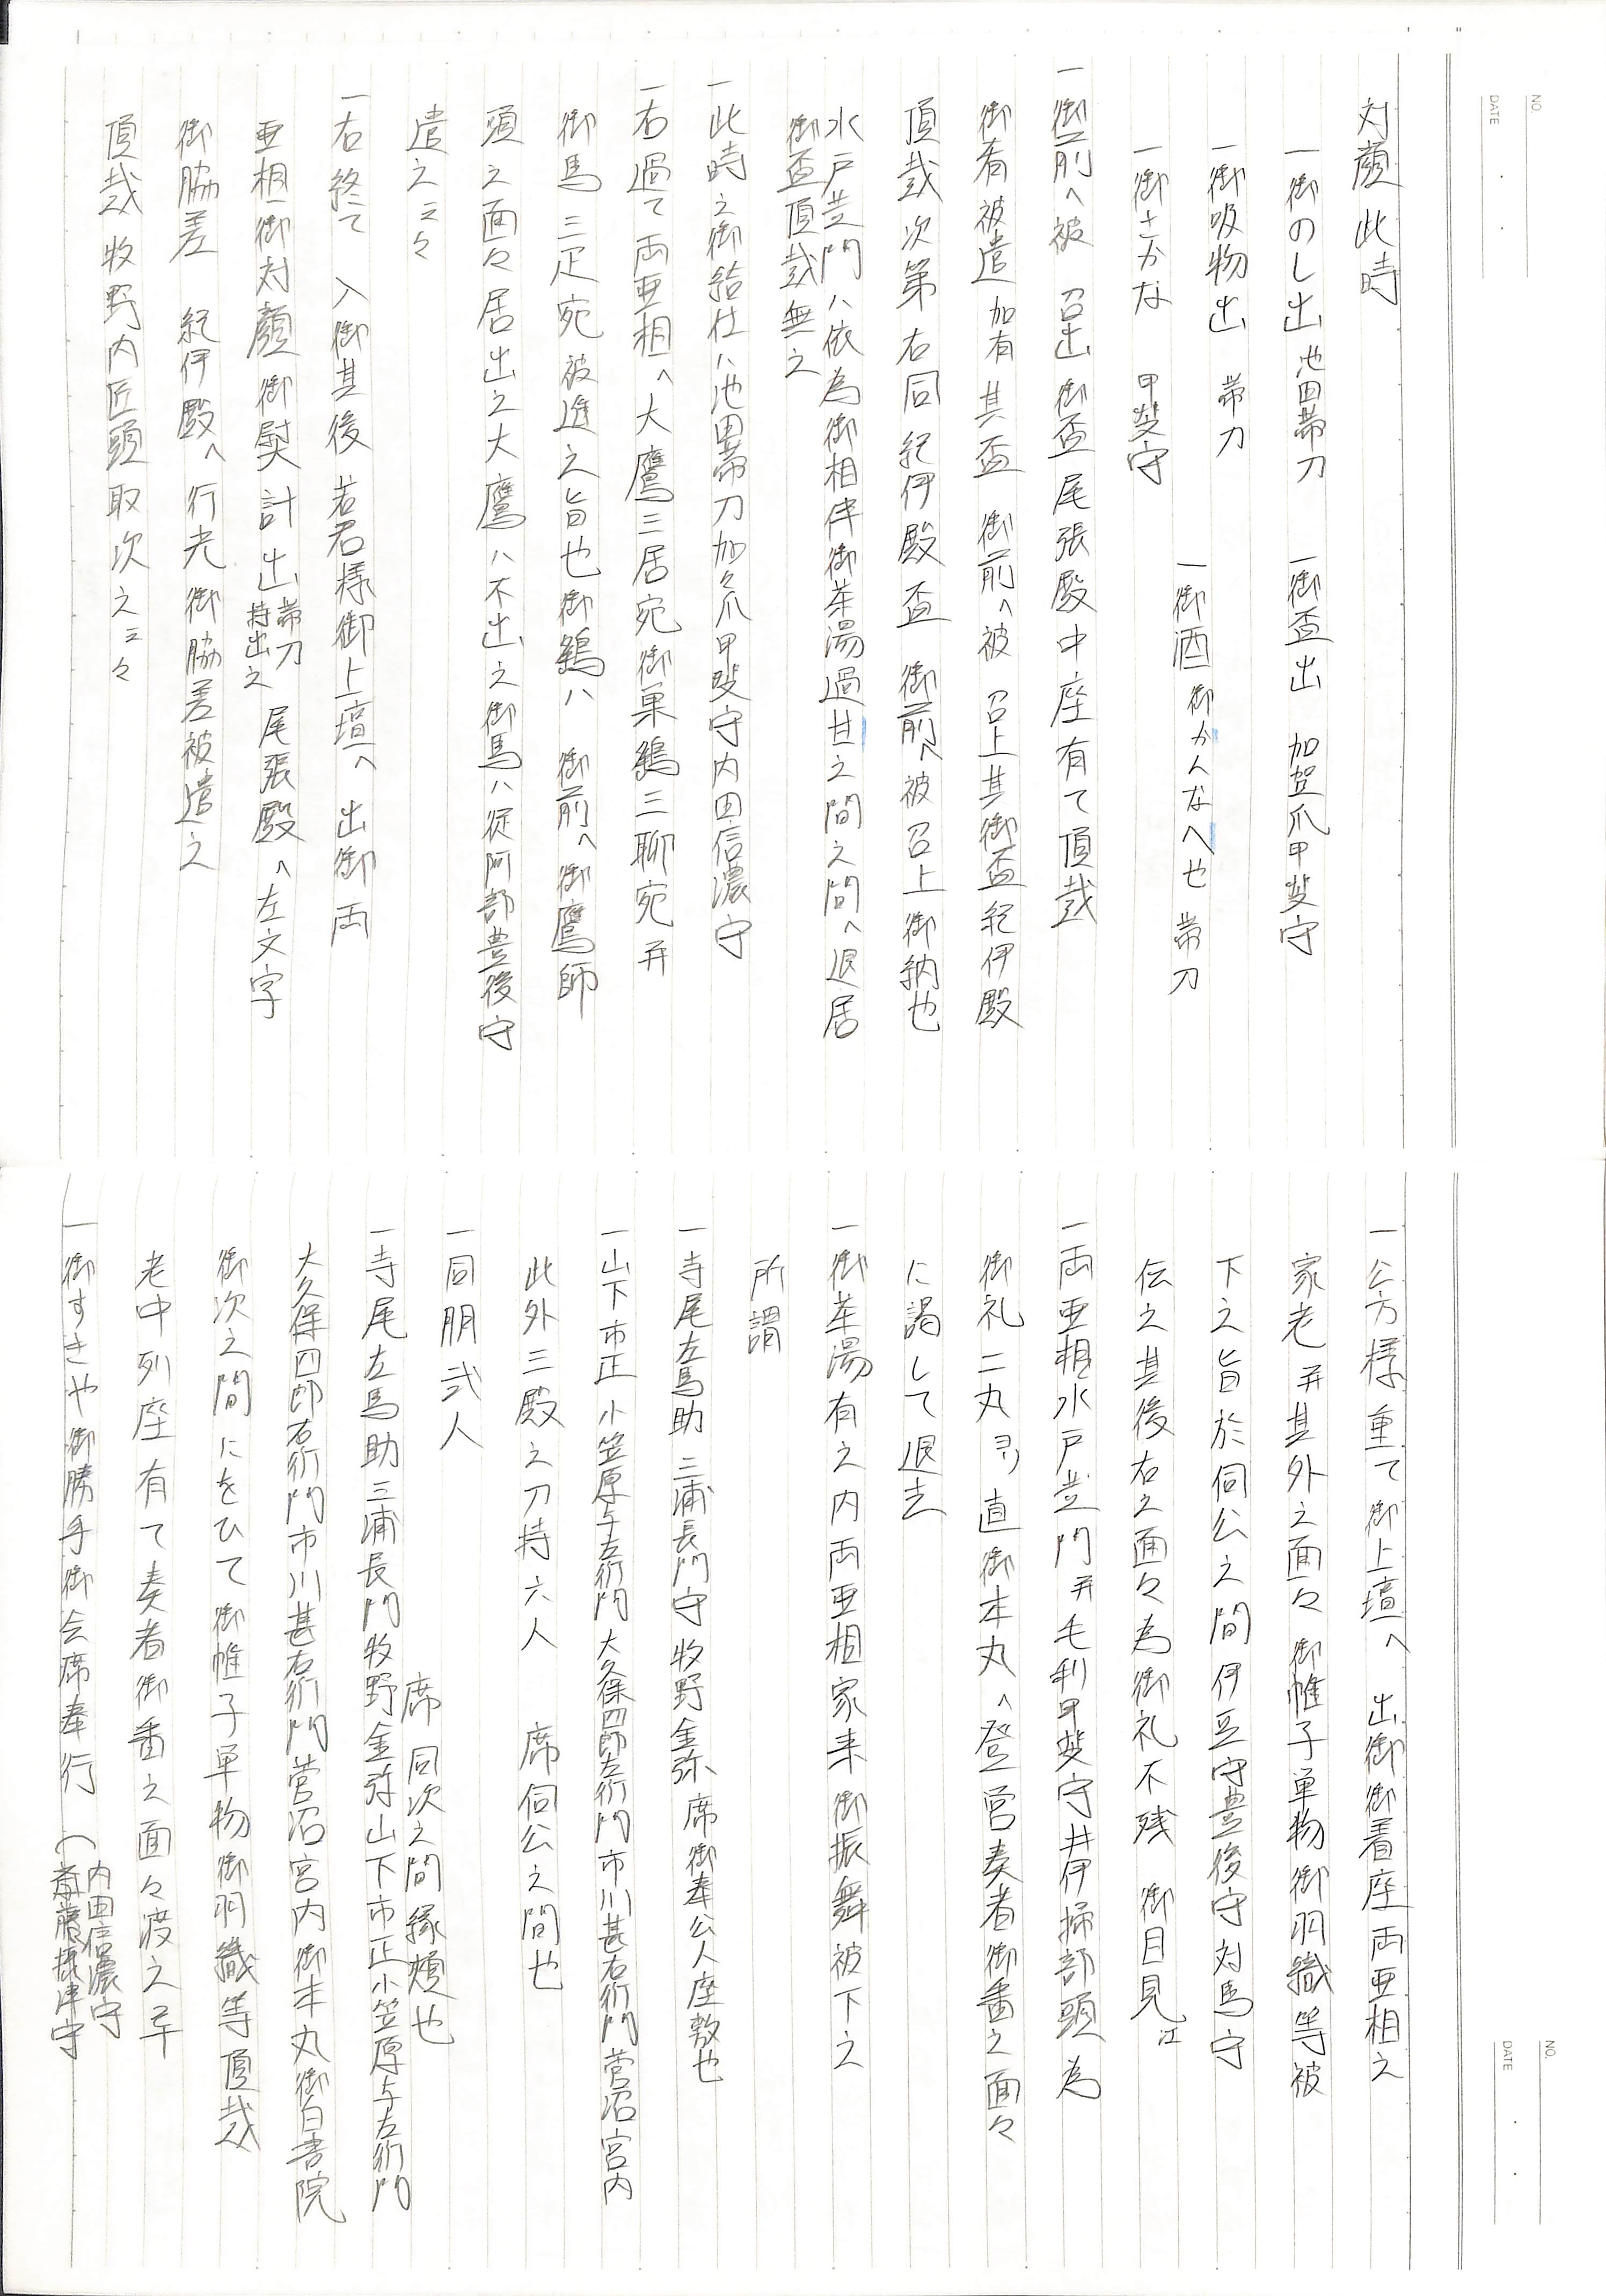 NO.
DATE
対顔此時
一御のし出 池田帯刀 一御盃出 加賀爪甲斐守
一御吸物出 帯刀
一御酒 御かんなへ也 帯刀
一御さかな 甲斐守
一御前へ被 召出御盃尾張殿中座有て頂戴
御肴被遣加有其盃 御前へ被 召上其御盃紀伊殿
頂戴次第右同紀伊殿盃 御前へ被召上御納也
水戸黄門ハ依為御相伴御茶湯過甘之間之間へ退居
御盃頂戴無之
一此時之御給仕ハ池田帯刀加々爪甲斐守内田信濃守
一右過て両亜相へ大鷹三居宛御巣鶴三聊宛并
御馬三疋宛被進之旨也御鶴ハ 御前へ御鷹師
頭之面々居出之大鷹ハ不出之御馬ハ従阿部豊後守
遣之云々
一右終て 入御其後若君様御上壇へ 出御両
亜相御対顔御熨計出 帯刀持出之 尾張殿へ左文字
御脇差 紀伊殿へ行光御脇差被遣之
頂戴牧野内匠頭取次之云々
NO.
DATE
一公方様重て御上壇へ 出御御着座両亜相之
家老并其外之面々御帷子単物御羽織等被
下之旨於伺公之間伊豆守豊後守対馬守
伝之其後右之面々為御礼不残 御目見江
一両亜相水戸黄門并毛利甲斐守井伊掃部頭為
御礼二丸ゟ直御本丸へ登営奏者御番之面々
に謁して退去
一御茶湯有之内両亜相家来御振舞被下之
所謂
一寺尾左馬助 三浦長門守 牧野金弥 席御奉公人座敷也
一山下市正 小笠原与左衛門 大久保四郎左衛門 市川甚右衛門 菅沼宮内
此外三殿之刀持六人 席伺公之間也
一同朋弐人
席 同次之間縁頬也
一寺尾左馬助三浦長門牧野金弥山下市正小笠原与左衛門
大久保四郎右衛門市川甚右衛門菅沼宮内御本丸御白書院
御次之間にをひて御帷子単物御羽織等頂戴
老中列座有て奏者御番之面々渡之畢
一御すきや御勝手御会席奉行 (内田信濃守
斎藤摂津守